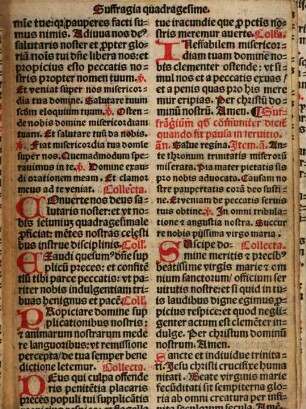 Suffragia quadragesime.
mie tue: qꝛ pauperes facti su
mus nimis. Adiuua nos de⁹
salutaris noster et ꝓpter gloriā
nominis tui dn̄e libera nos: et
propicius esto peccatis no
stris propter nomen tuum. ꝟ.
Et veniat super nos misericor
dia tua domine. Salutare tuum
Oste
de nobis domine misericordiam
tuam. Et salutare tuū da nobis.
ꝟ. Fiat misericordia tua domine
super nos. Quemadmodum spe
rauimus in te. ꝟ. Domine exau
di orationem meam. Et clamor
meus ad te veniat. Collecta.
COnuerte nos deus salu
taris noster: et vt no
bis ieiuniuȝ quadragesimale
ꝓficiat: mētes nostras celesti
bus instrue disciplinis. Coll.
EXaudi quesum⁹ dn̄e sup
plicū preces: et confitē
tiū tibi parce peccatis: vt pa
riter nobis indulgentiam tri
buas benignus et pacē. Coll.
PRopiciare domine sup
plicationibus nostris:
et animarum nostrarum mede
re languoribus: vt remissio
ne percepta: de tua semper bene
dictione letemur. Collecta.
DEus qui culpa offende
ris penitētia placaris
preces populi tui supplicantis
tue iracundie que ꝓ pctis no
stris meremur auerte. Collcā.
INeffabilem misericor
diam tuam domine no
bis clementer ostende: vt si
mul nos et a peccatis exuas:
et a penis quas pro his mere
mur eripias. Per christū do
minū nostrū. Amen. Suf
fragium qđ
quando fit pausa in
ān. Salue regina. Item. ān. An
te thronum trinitatis miserorū
miserata. Pia mater pietatis sis
pro nobis aduocata. Causam no
stre paupertatis corā deo susti
ne. Et veniam de peccatis seruis
tuis obtine. ꝟ. In omni tribula
tione et angustia nostra. Succur
re nobis pijssima virgo maria.
SUscipe do Collecta.
mine meritis et preci⁹
beatissime virgīs marie et o
mnium sanctorum/ officium ser
uitutis nostre: et si quid in tu
is laudibus digne egimus ꝓ
picius respice: et quod negli
genter actum est clementer in
dulge. Per christum dominū
nostrum. Amen.
SAncte et indiuidue trini
tati. Jesu christi crucifixi
humanitati. Beate virginis marie
fecunditati sit sempiterna glo
ria ab omni creatura per infini